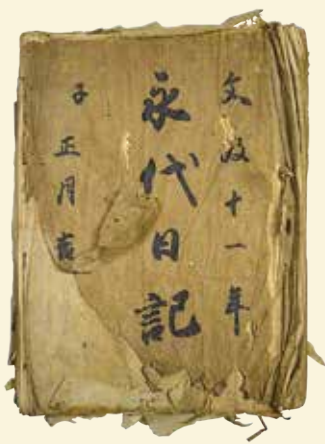 文政十一年
永代日記
子正月吉